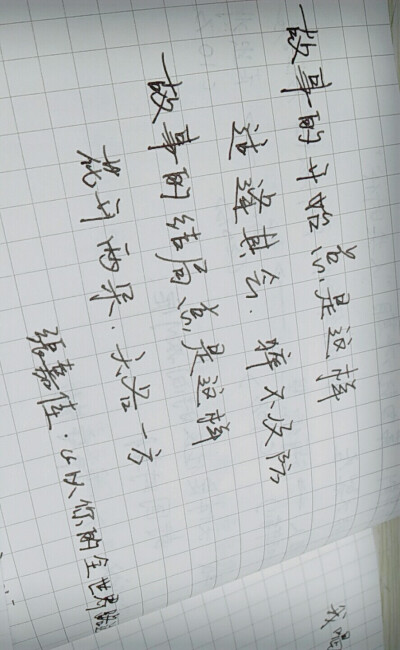 故事的开始总是这样
适逢其会.猝不及防
故事的结局总是这样
花开两朵.天各一方
张嘉佳.《从你的全世界路过
我